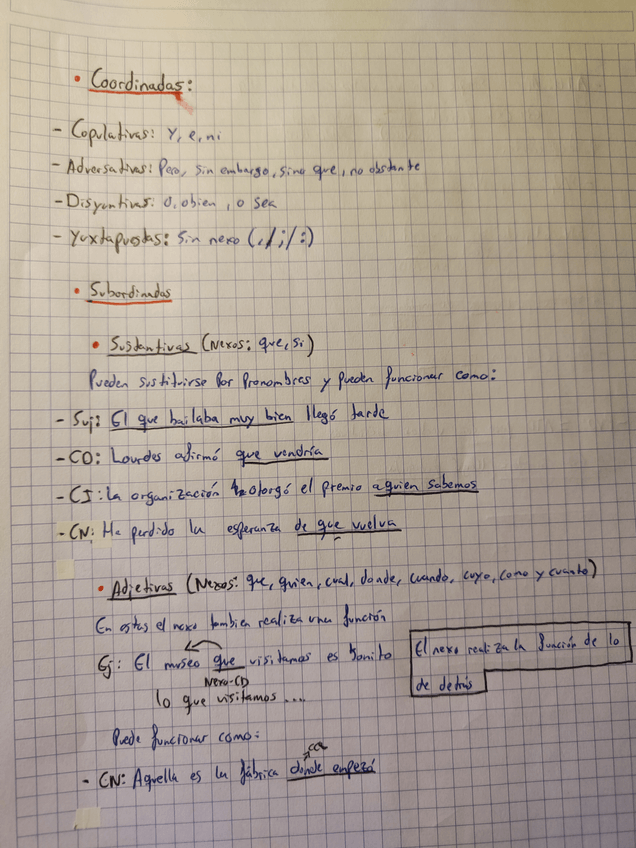 • Coordinadas:
- Copulativas: Y, e, ni
- Adversativas: Pero, sin embargo, sino que, no obstante
- Disyuntivas: O, obien, o sea
- Yuxtapuestas: Sin nexo (,/;/:)
• Subordinadas
• Sustantivas (Nexos: que, si)
Pueden sustituirse por pronombres y pueden funcionar como:
- Suj: El que bailaba muy bien llegó tarde
- CO: Lourdes afirmó que vendría
- CI: La organización otorgó el premio a quien sabemos
- CN: Ha perdido la esperanza de que vuelva
• Adjetivas (Nexos: que, quien, cual, donde, cuando, cuyo, como y cuanto)
En estas el nexo tambien realiza una función
Ej: El museo que visitamos es bonito
Nexo-CD
lo que visitamos ....
El nexo realiza la función de lo
de detrás
Puede funcionar como:
- CN: Aquella es la fábrica donde empezó